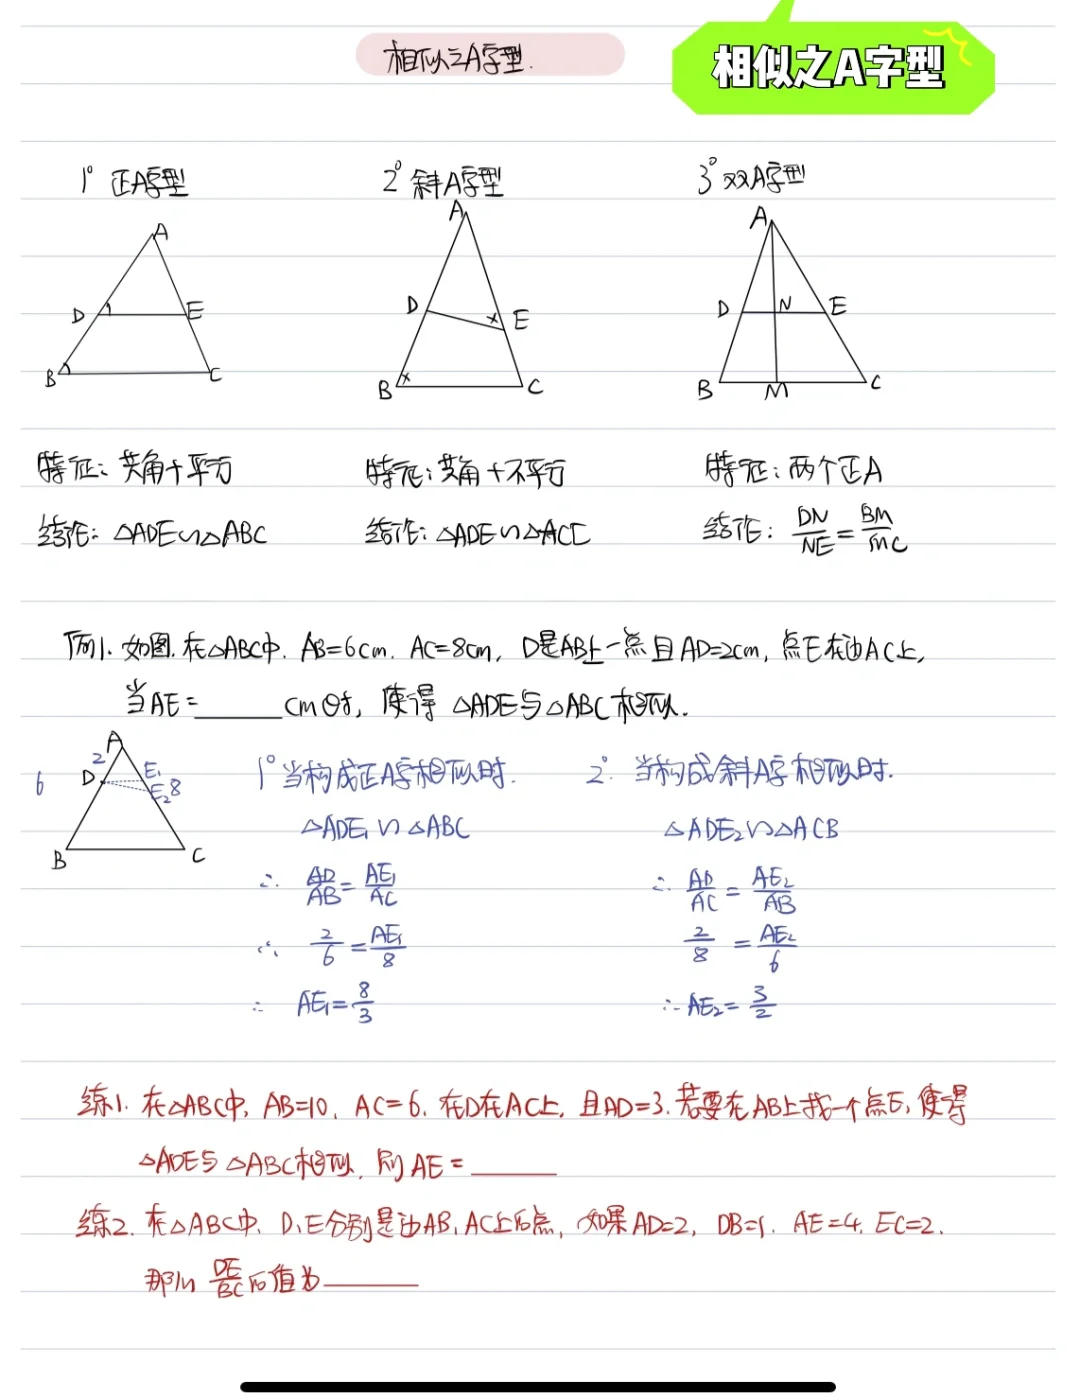 相似之A字型.
相似之A字型
1° 正A字型
2° 斜A字型
3° 双A字型
A
D E
B C
A
D E
× ×
B C
A
D N E
B M C
特征: 共角+平行
特征: 共角+不平行
特征: 两个正A
结论: △ADE∽△ABC
结论: △ADE∽△ACE
结论: DN/NE = BM/MC
例1. 如图. 在△ABC中. AB=6cm. AC=8cm, D是AB上一点且AD=2cm, 点E在边AC上,
当AE=______cm时, 使得 △ADE与△ABC相似.
A
2 D E₁
6 E₂ 8
B C
1° 当构成正A字相似时.
△ADE₁∽△ABC
∴ AD/AB = AE₁/AC
∴ 2/6 = AE₁/8
∴ AE₁ = 8/3
2° 当构成斜A字相似时.
△ADE₂∽△ACB
∴ AD/AC = AE₂/AB
2/8 = AE₂/6
∴ AE₂ = 3/2
练1. 在△ABC中, AB=10, AC=6. 在D在AC上, 且AD=3. 若要在AB上找一个点E, 使得
△ADE与△ABC相似, 则AE=______
练2. 在△ABC中, D、E分别是边AB、AC上的点, 如果AD=2, DB=1. AE=4, EC=2.
那么 DE/BC 的值为______